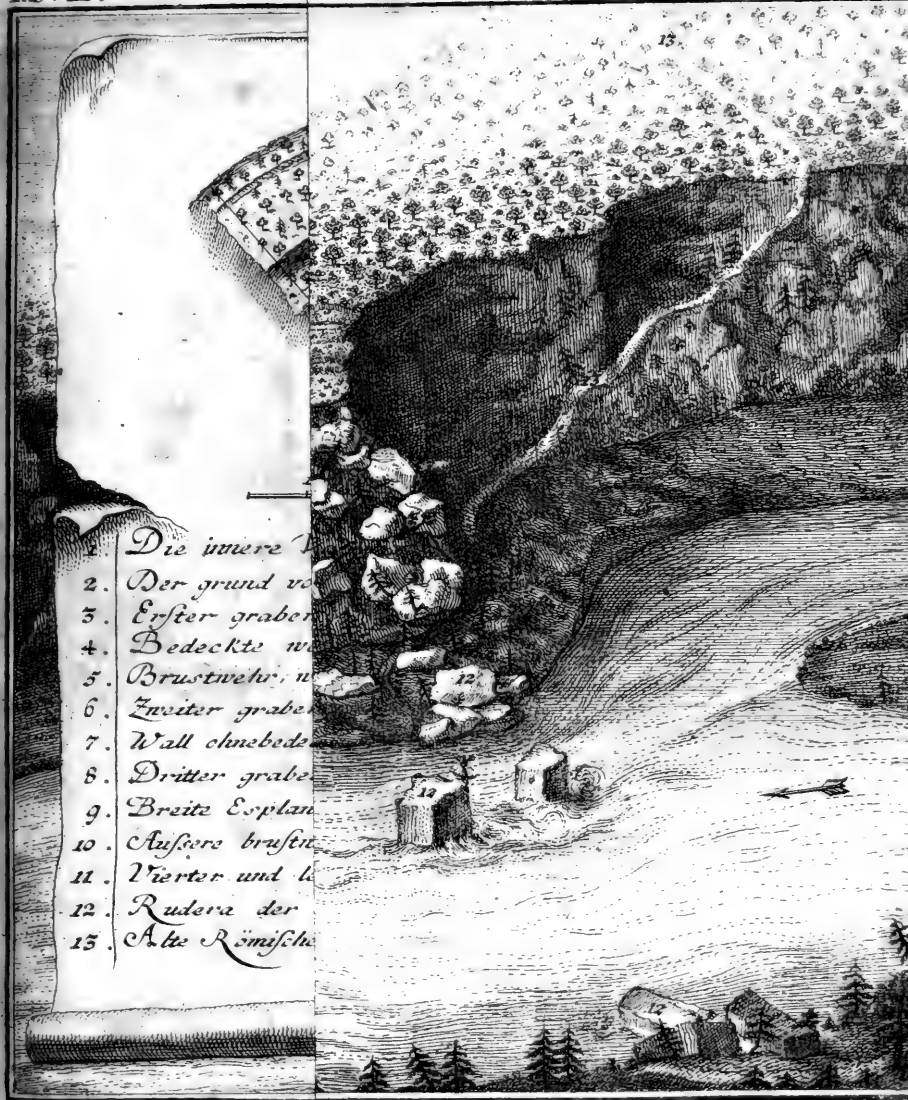 13.
1. Die innere
2. Der grund vo
3. Erster graben
4. Bedeckte we
5. Brustwehr, n
6. Zweiter grabe
7. Wall ohnebede
8. Dritter grabe
9. Breite Esplan
10. Aüßere brustw
11. Vierter und le
12. Rudera der
13. Alte Römische
12
12